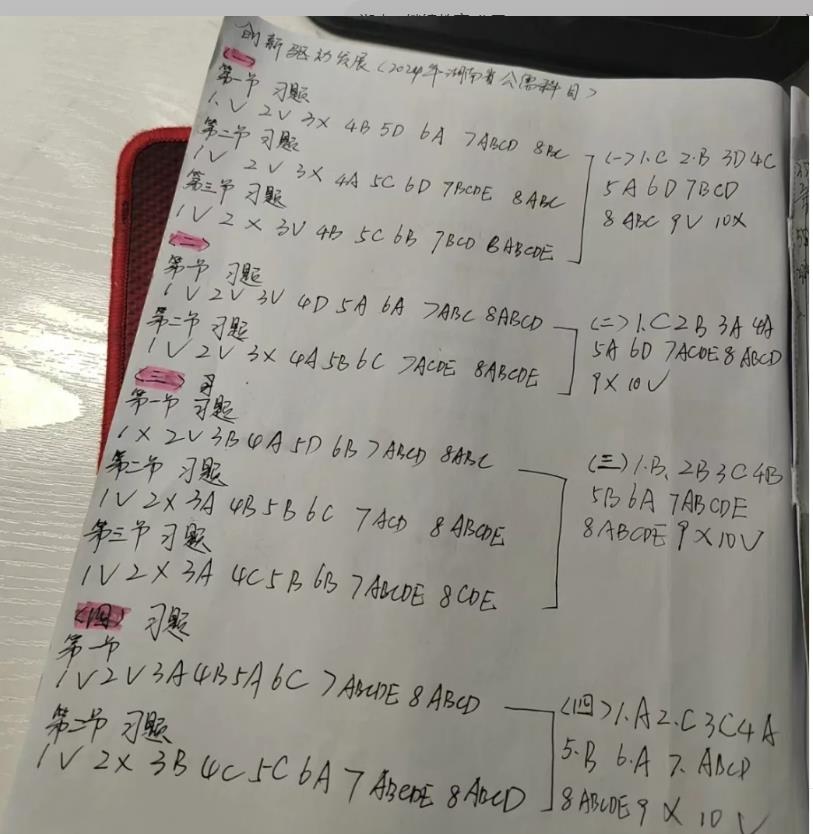 创新驱动发展（2024年湖南省公需科目）
（一）
第一节 习题
1.V 2V 3X 4B 5D 6A 7ABCD 8BC
第二节 习题
1V 2V 3X 4A 5C 6D 7BCDE 8ABC
第三节 习题
1V 2X 3V 4B 5C 6B 7BCD 8ABCDE
（一）1.C 2.B 3D 4C
5A 6D 7BCD
8ABC 9V 10X
（二）
第一节 习题
1V 2V 3V 4D 5A 6A 7ABC 8ABCD
第二节 习题
1V 2V 3X 4A 5B 6C 7ACDE 8ABCDE
（二）1.C 2B 3A 4A
5A 6D 7ACDE 8ABCD
9X 10V
（三）习
第一节 习题
1X 2V 3B 4A 5D 6B 7ABCD 8ABC
第二节 习题
1V 2X 3A 4B 5B 6C 7ACD 8ABCDE
第三节 习题
1V 2X 3A 4C 5B 6B 7ABCDE 8CDE
（三）1.B、2B 3C 4B
5B 6A 7ABCDE
8ABCDE 9X 10V
（四）习题
第一节
1V 2V 3A 4B 5A 6C 7ABCDE 8ABCD
第二节 习题
1V 2X 3B 4C 5C 6A 7ABCDE 8ABCD
（四）1.A 2.C 3C 4A
5.B 6.A 7.ABCD
8ABCDE 9X 10V